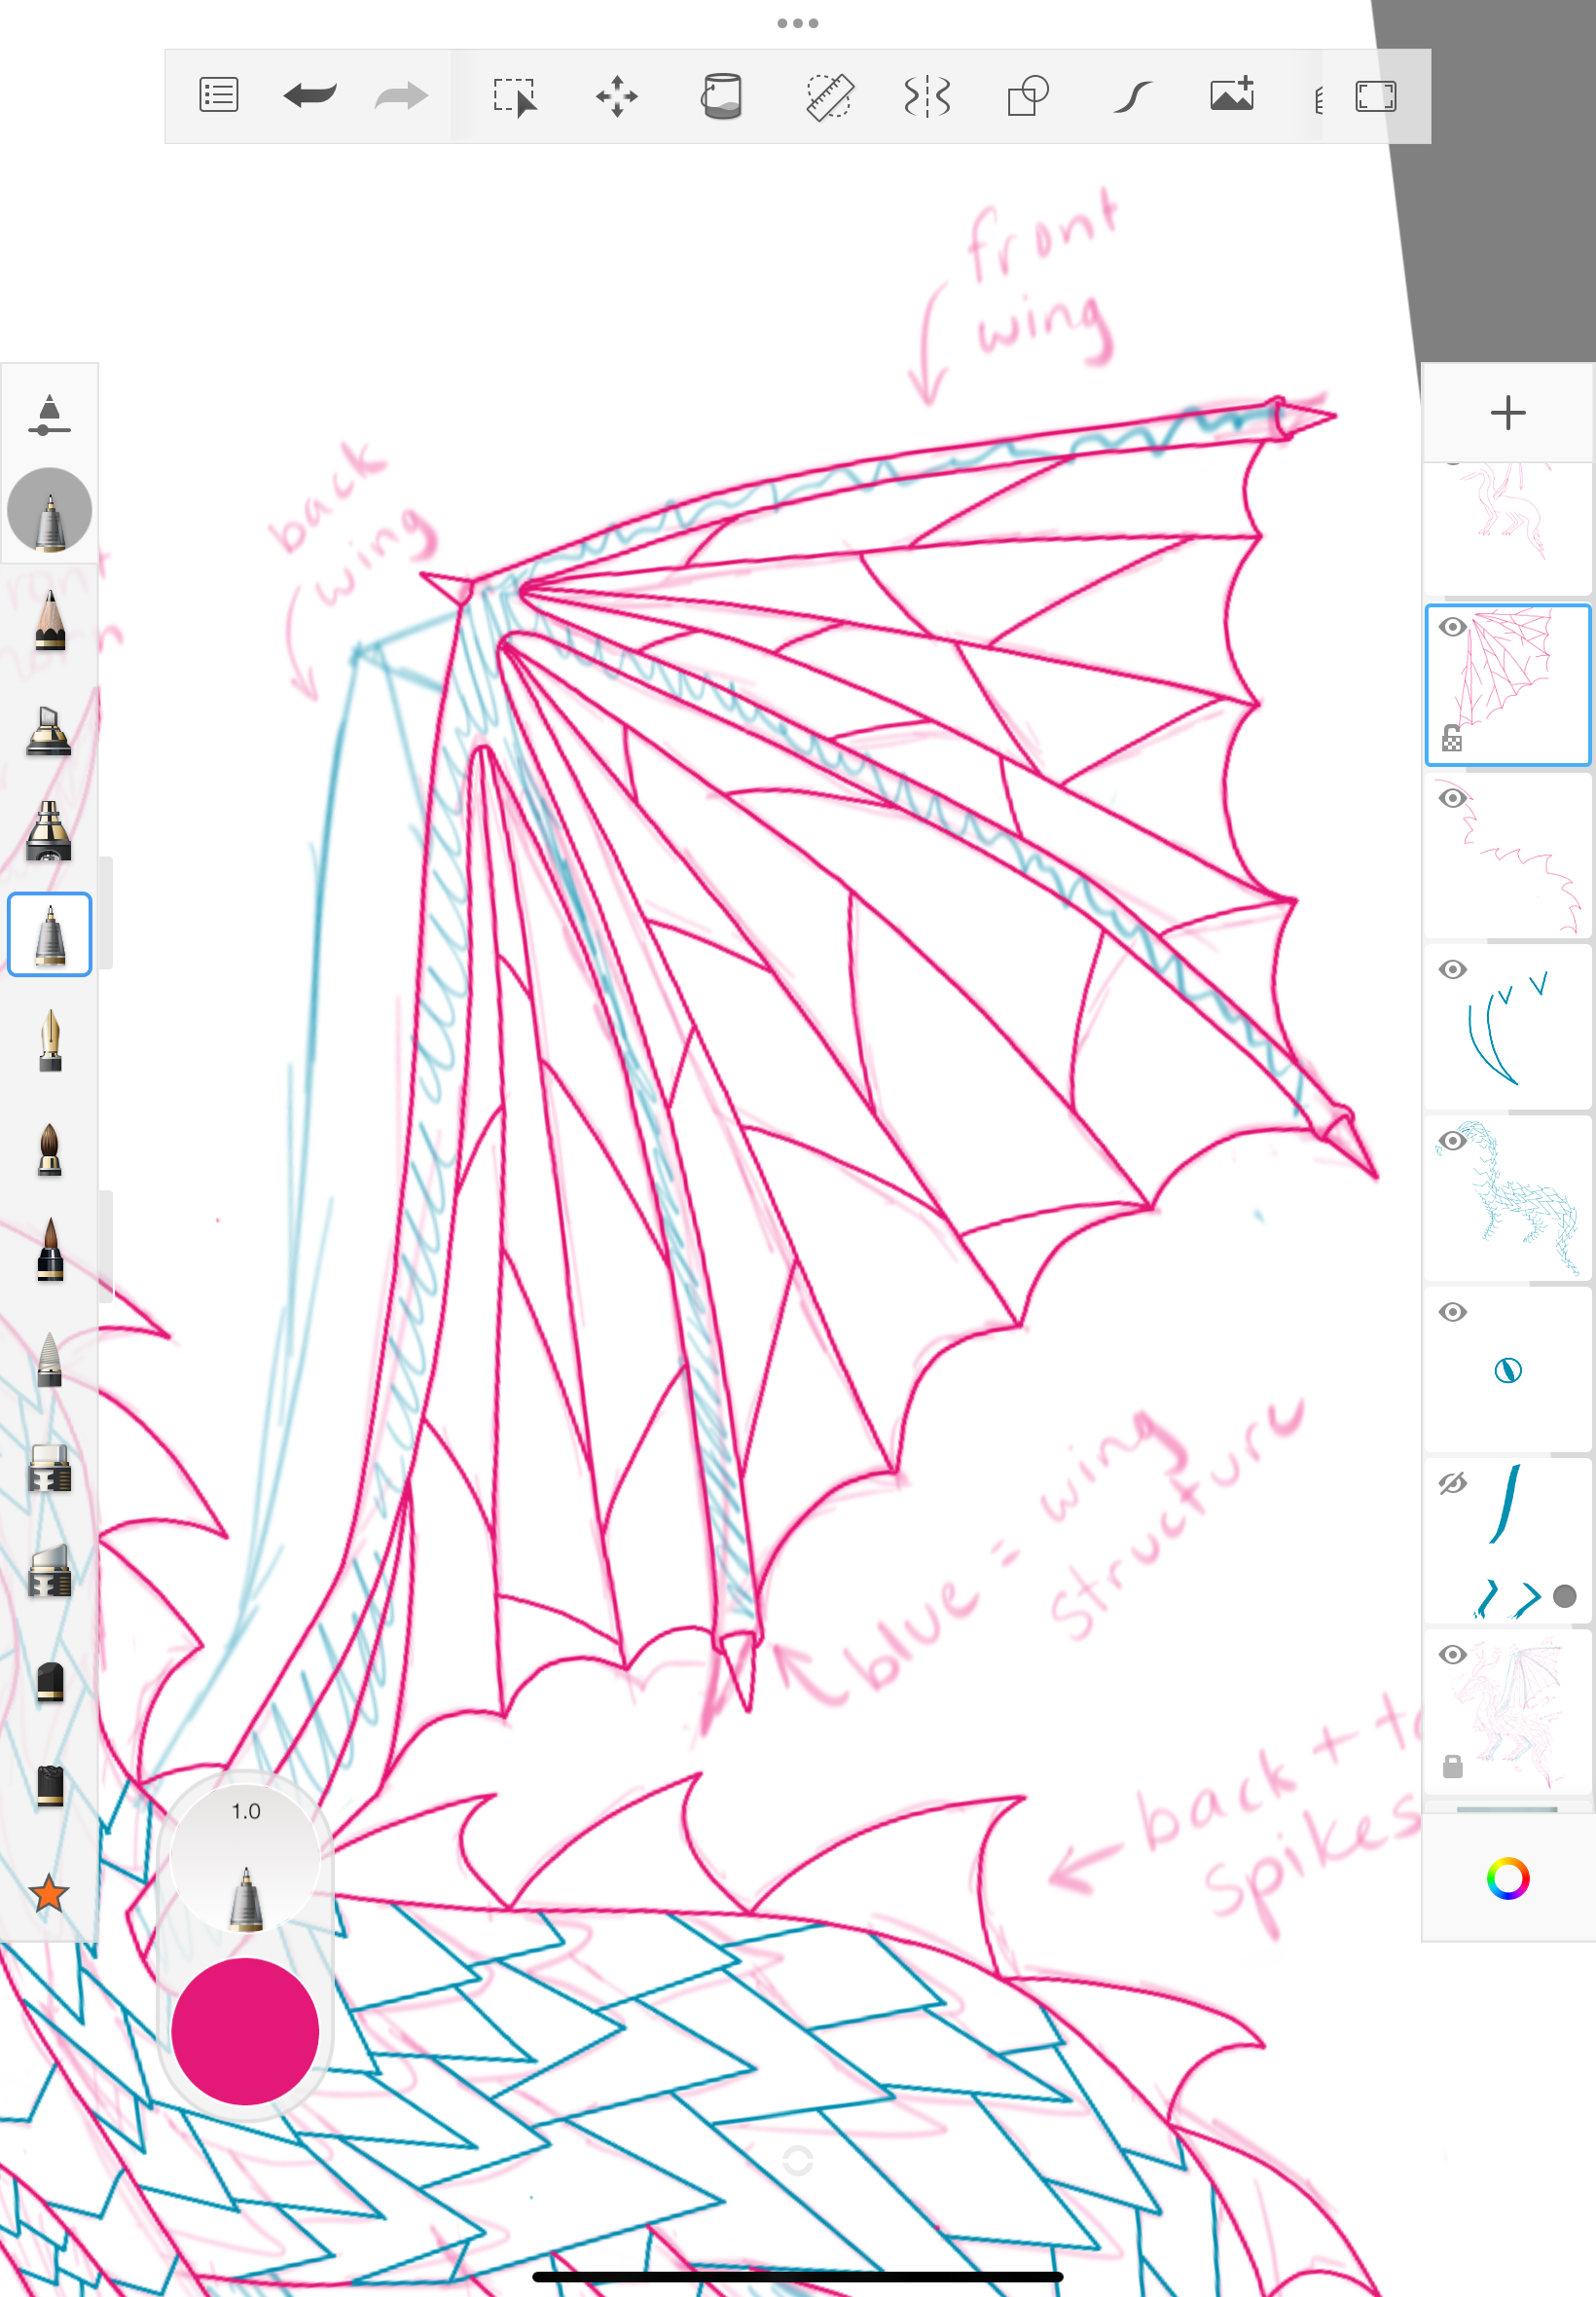 front
wing
back
wing
blue = wing
structure
back +
spikes
1.0